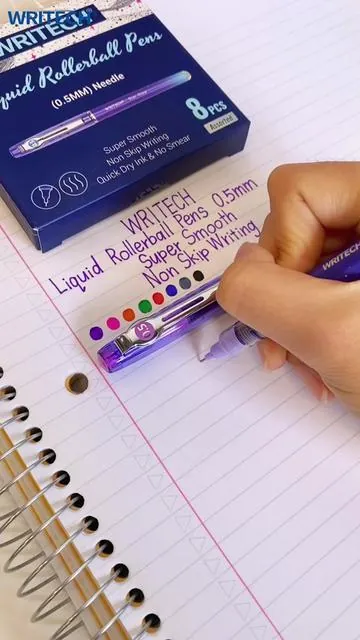 WRITECH
WRITECH
Liquid Rollerball Pens
(0.5MM) Needle
Super Smooth
Non Skip Writing
Quick Dry Ink & No Smear
8PCS
Assorted
WRITECH
Liquid Rollerball Pens 0.5mm
Super Smooth
Non Skip Writing
0.5
WRITECH